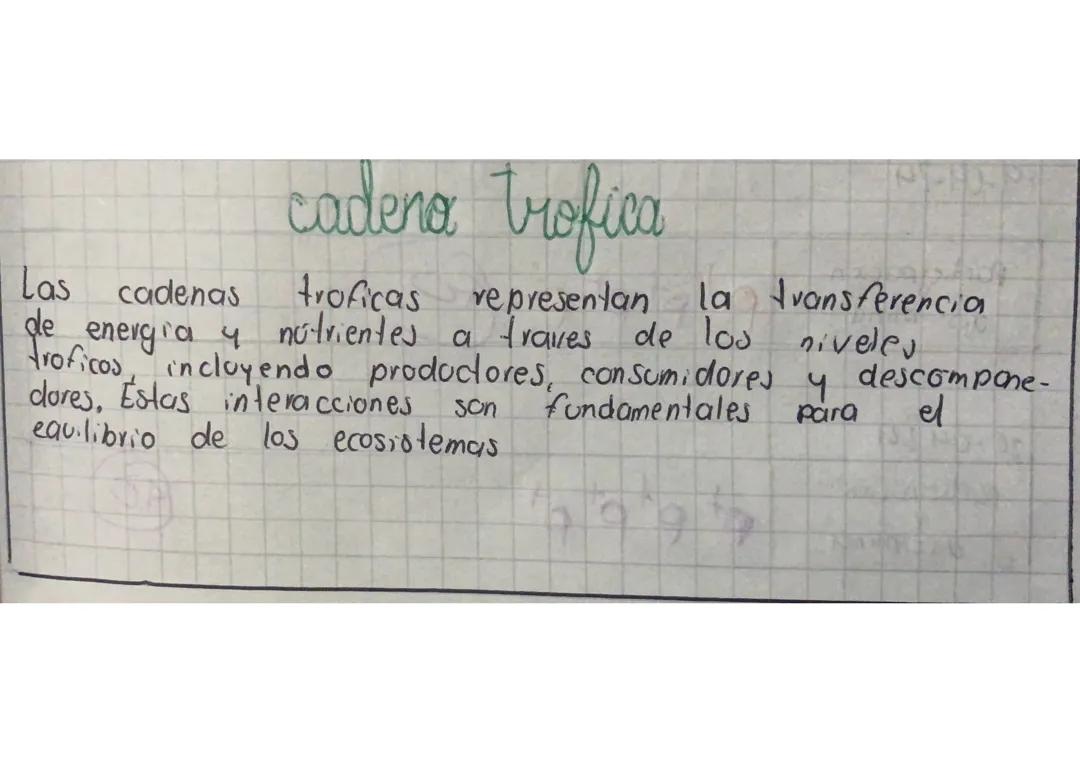 cadena trofica
Las cadenas troficas representan la transferencia
de energia y nutrientes a traves de los niveles
troficos, incluyendo productores, consumidores y descompone-
dores. Estas interacciones son fundamentales para el
equilibrio de los ecosistemas